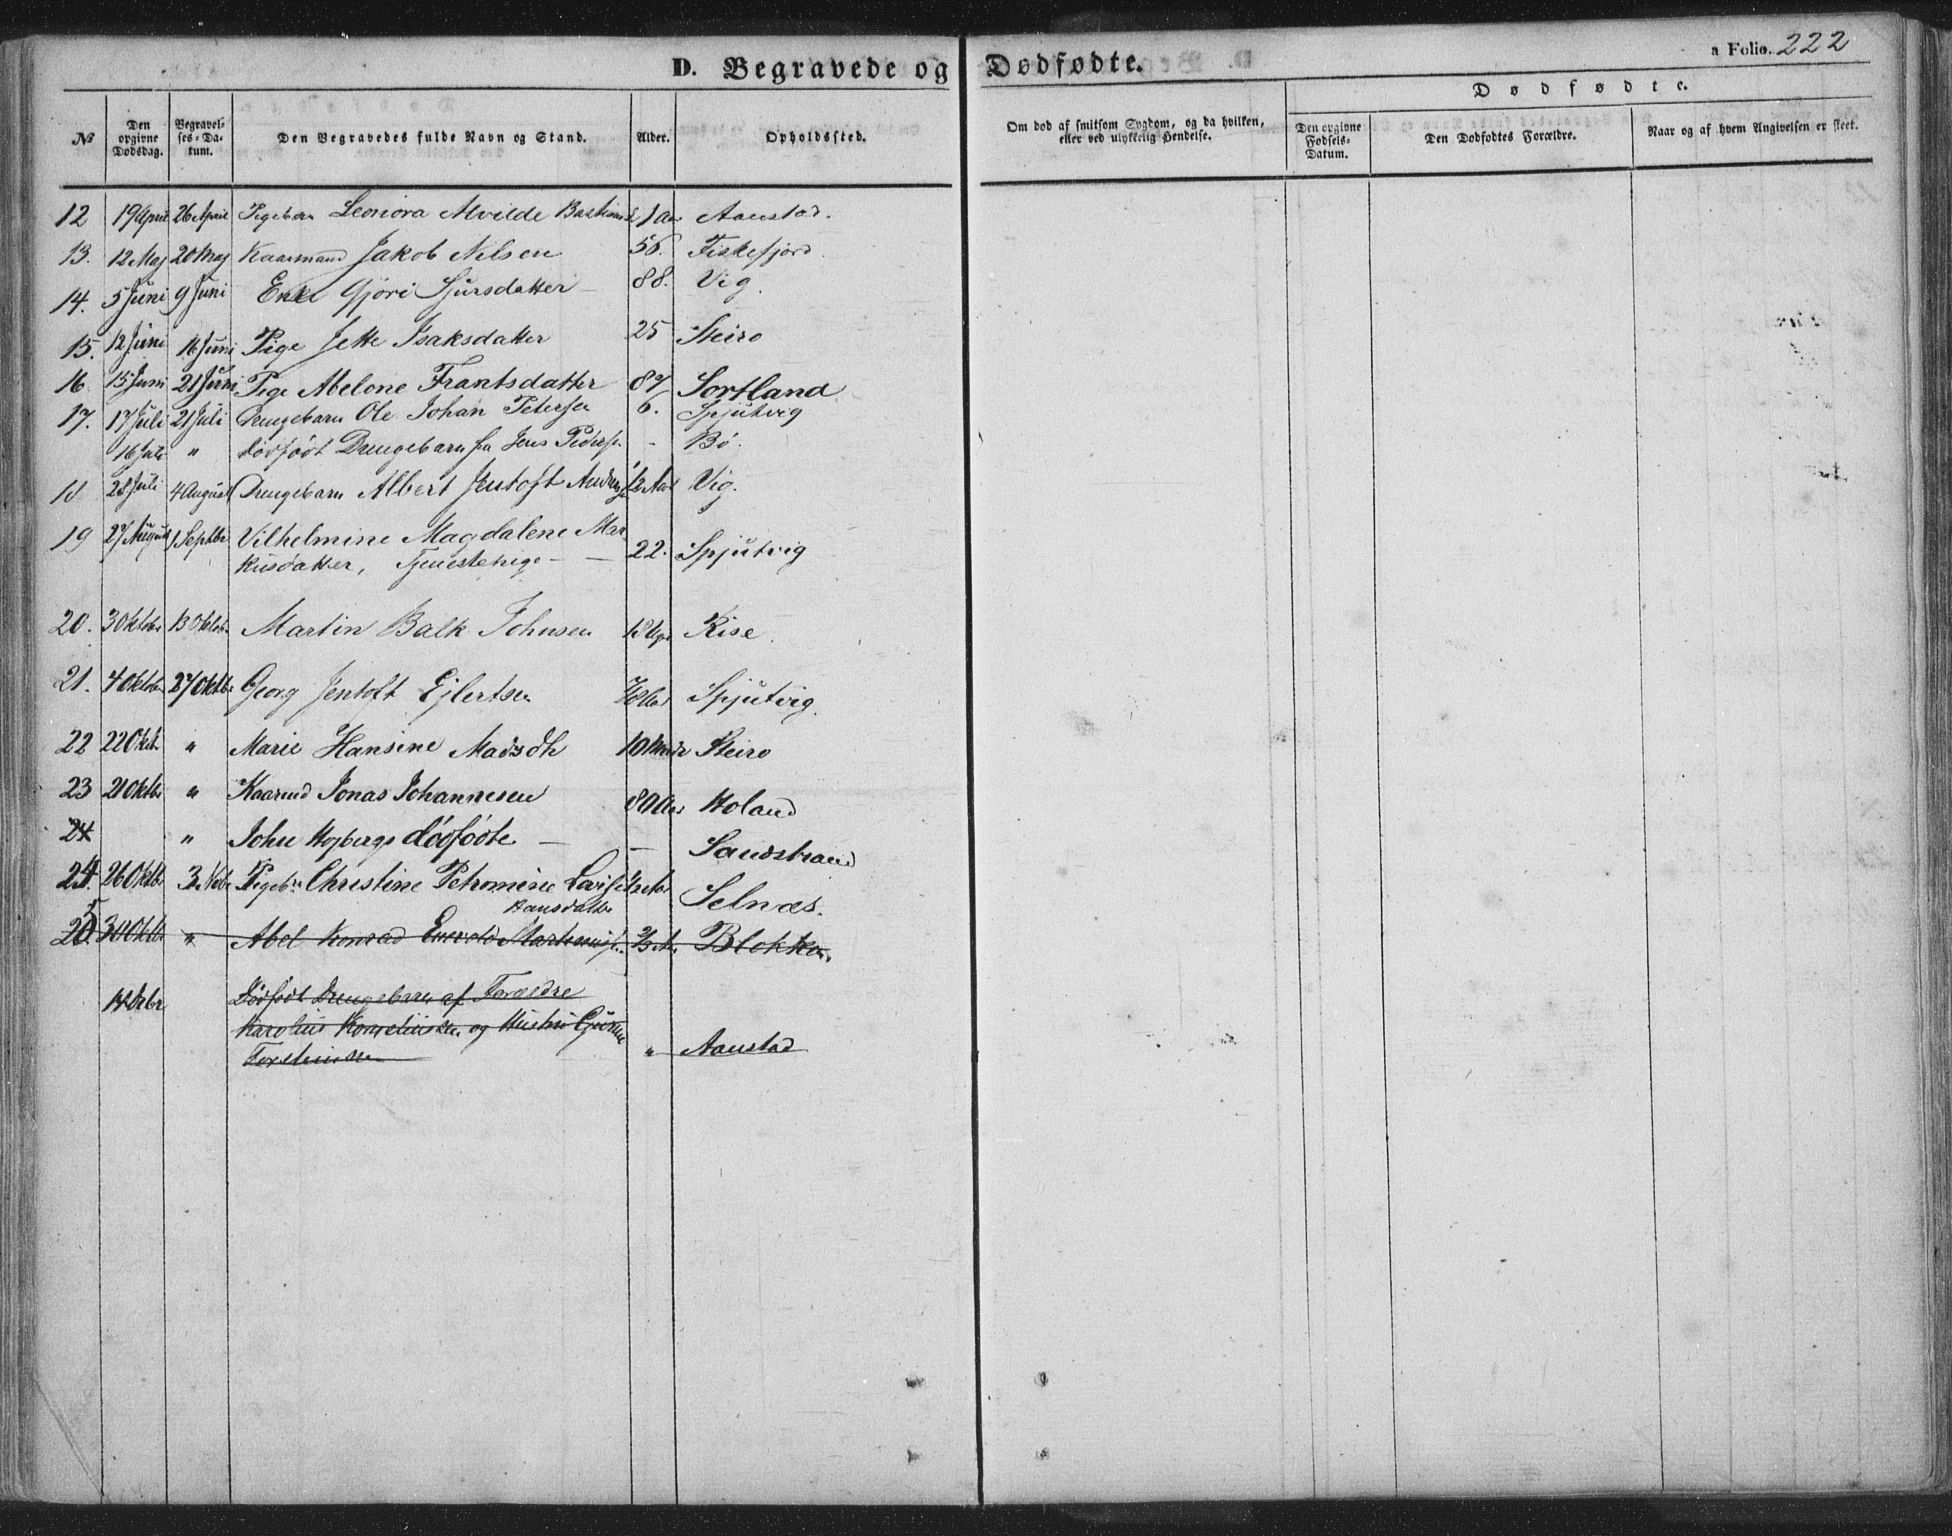 a Folio. 222
D. Begravede og Dødfødte.
Dødfødte.
No
Den opgivne Dødsdag.
Begravelses-Datum.
Den Begravedes fulde Navn og Stand.
Alder.
Opholdssted.
Om død af smitsom Sygdom, og da hvilken, eller ved ulykkelig Hendelse.
Den opgivne Fødsels-Datum.
Den Dødfødtes Forældre.
Naar og af hvem Angivelsen er skeet.
12 19 April 26 April Pigebarn Leonora Mvilde 1 Aar Aanstad.
13. 12 Maj 20 Maj Kaarmand Jakob Nilsen 56. Fiskefjord.
14. 5 Juni 9 Juni Enke Gjöri Sjursdatter 88. Vig.
15. 12 Juni 16 Juni Pige Jette Isaksdatter 25 Steiro
16 15 Juni 21 Juni Pige Abelone Frantsdatter 87 Sortland
17. 17 Juli 21 Juli Drengebarn Ole Johan Petersen 6. Spjutvig
16 Juli " dödfödt Drengebarn fra Jens Peders. - Bö.
18 28 Juli 4 August Drengebarn Albert Jentoft 1/2 Aar Vig.
19 27 August 1 Septbr Vilhelmine Magdalene Mar-
kusdatter, Tjenestepige - 22. Spjutvig
20. 3 Oktobr 13 Oktobr Martin Balk Johnsen 13 Uger Rise.
21. 4 Oktobr 27 Oktbr Georg Jentoft Ejlertsen Spjutvig.
22 22 Okt. " Marie Hansine Madsdtr 10 Mndr Steiro
23 21 Oktbr " Kaarmd Jonas Johannesen 80 Aar Holand
24 " John Hojbergs dödfödte - - Sandstrand
24. 26 Oktbr 3 Novbr Pigebn Christine Petromine Lovise Selnæs.
Hansdatter
25 30 Oktbr " Abel Konrad Enevold 2/3 Blokken.
14 Dödfödt Drengebarn af Forældre
Karolius Korneliussen og Hustru
" Aanstad